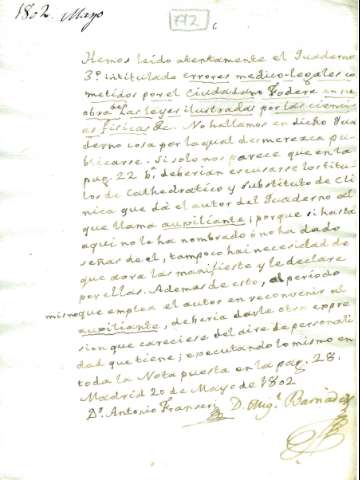 1802. Mayo
A72
Hemos leido atentamente el Quaderno
3º intitulado errores medico-legales co
metidos por el Ciudadano Foderé en su
obra las leyes ilustradas por las ciencias
as fisicas &c. No hallamos en dicho Qua
derno cosa por la qual desmerezca pu
blicarse. Si solo nos parece que en la
pag. 22 b. deberian escusarse los titu
los de Cathedratico y substituto de Cli
nica que dá el autor del Quaderno al
que llama auxiliante; porque si hasta
aqui no le ha nombrado ó no ha dado
señas de el, tampoco hai necesidad de
que aora las manifieste y le declare
por ellas. Ademas de esto, al periodo
mismo que emplea el autor en reconvenir al
auxiliante, deberia darle otra expre
sion que careciese del aire de personali
dad que tiene; executando lo mismo en
toda la Nota puesta en la pag. 28.
Madrid 20 de Mayo de 1802
Dr. Antonio Franseri D. Migl. Barnades